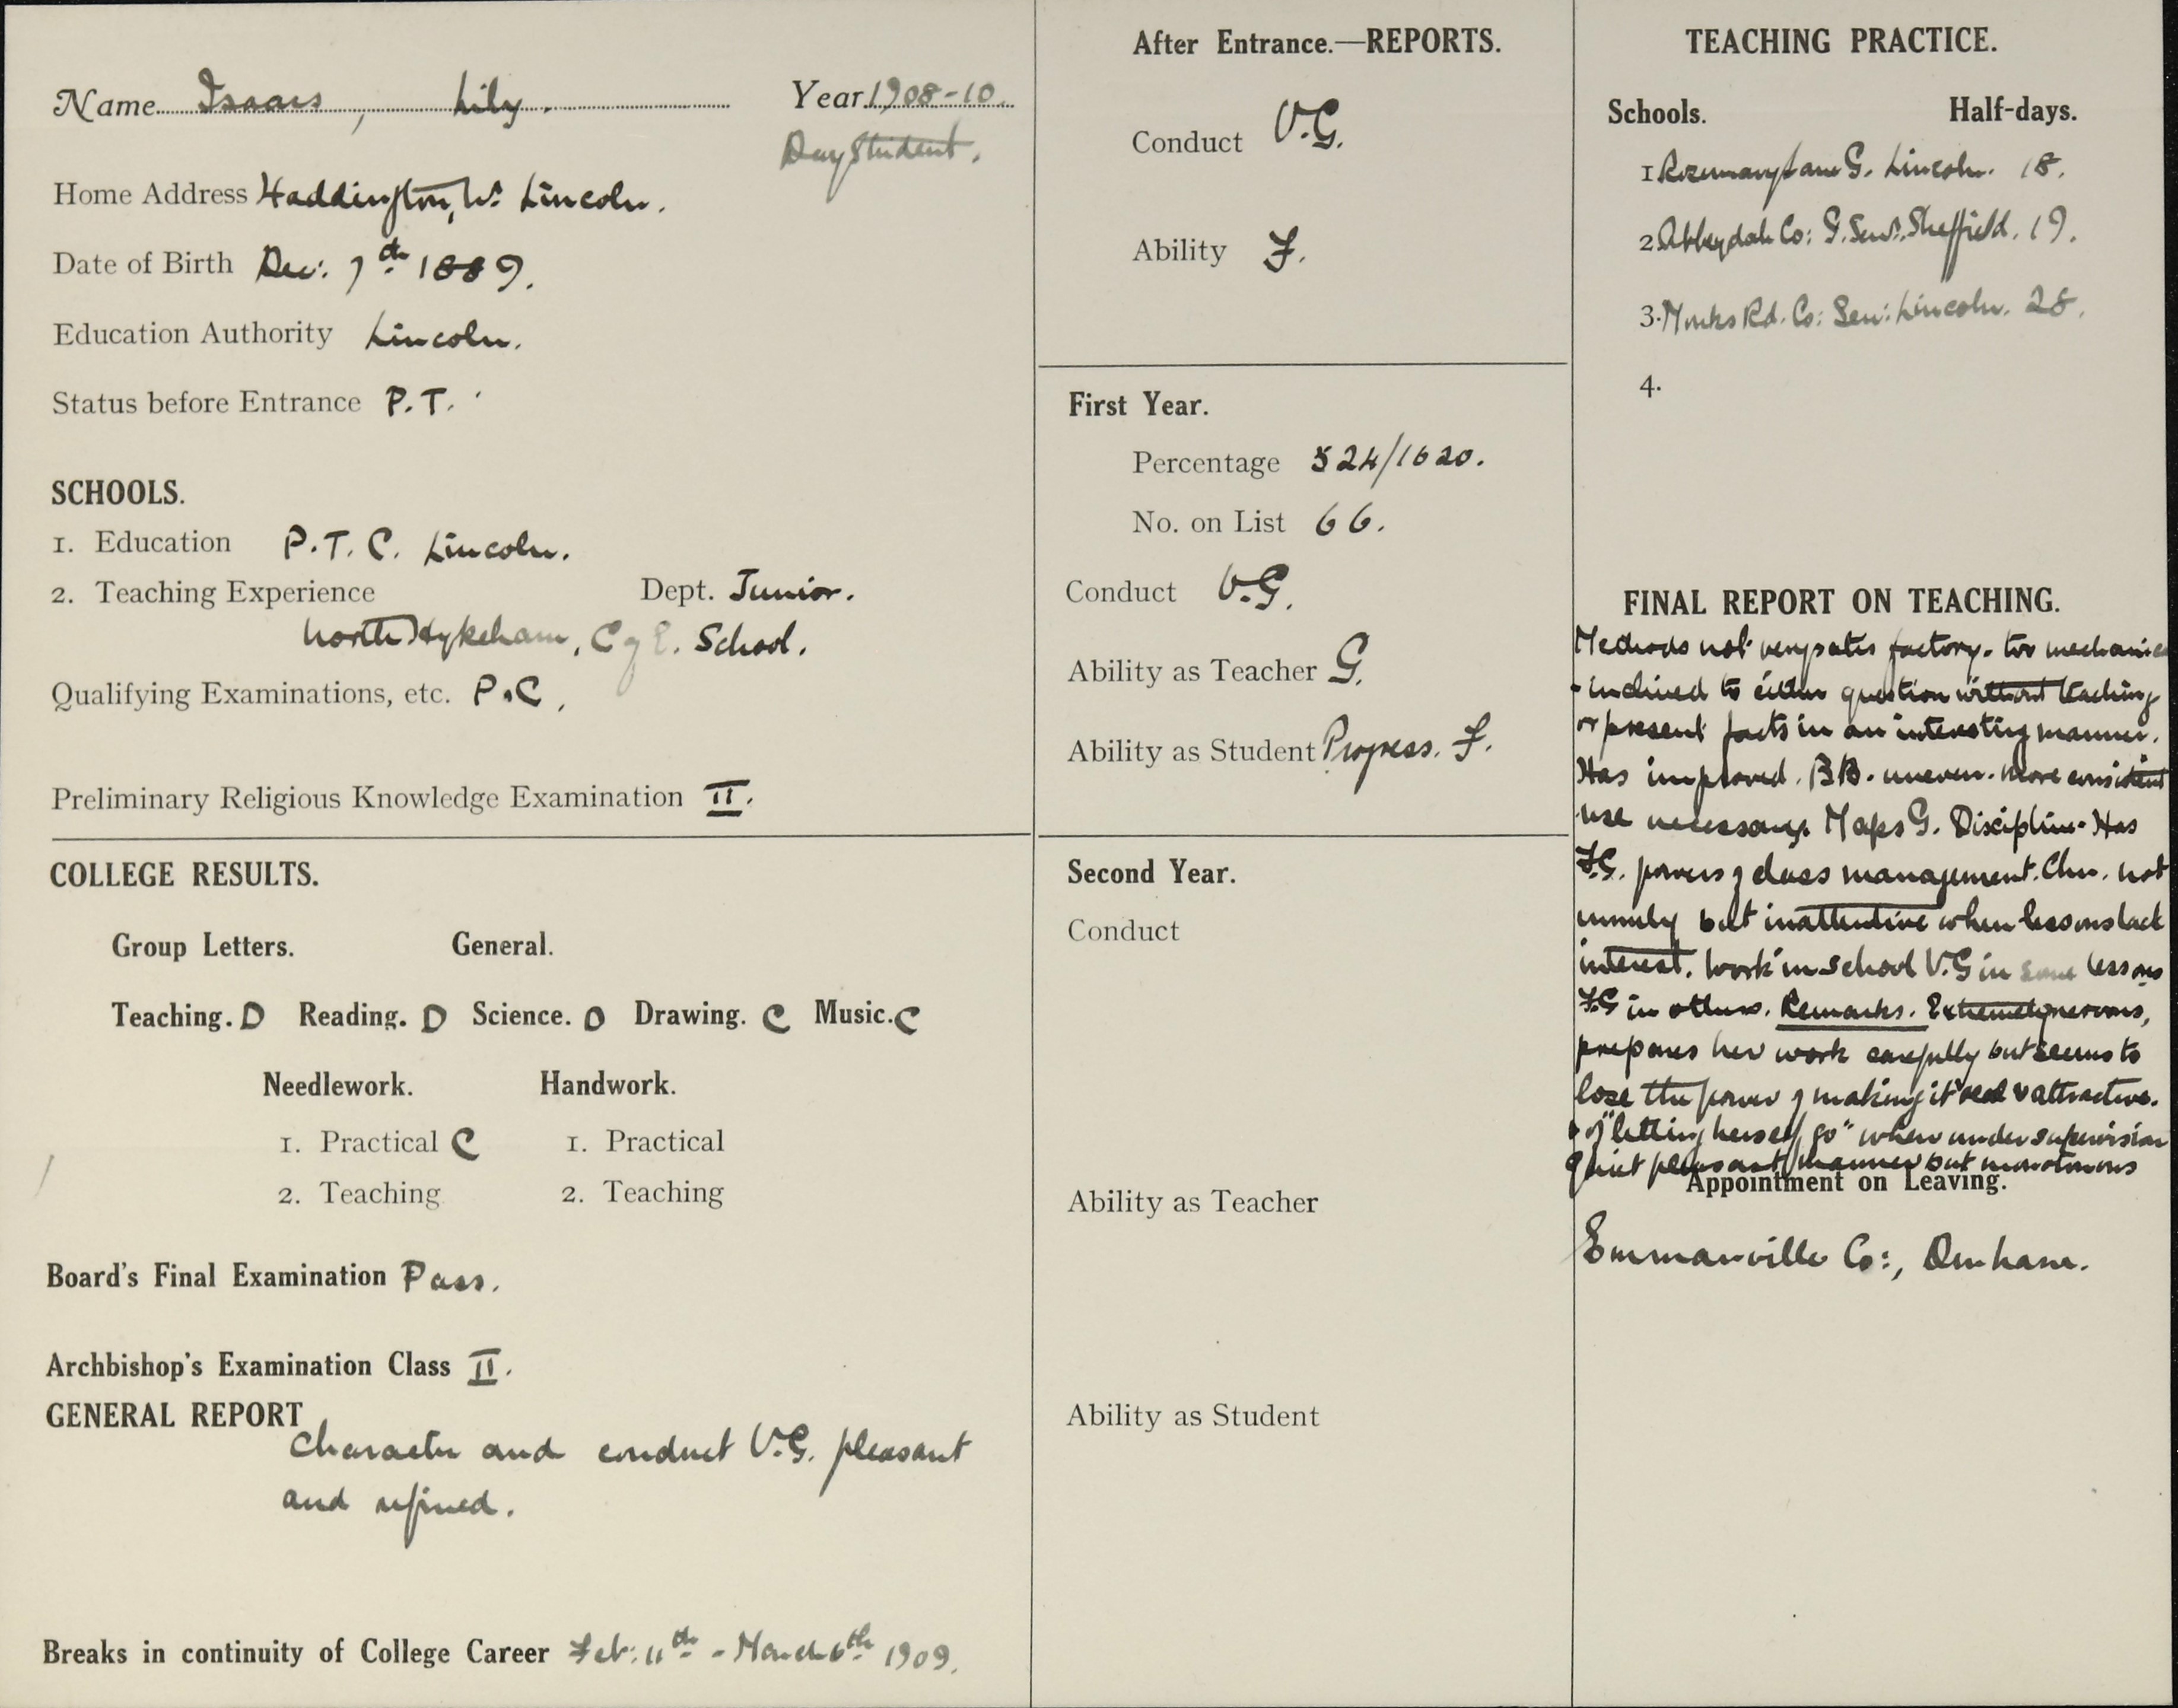 Name Isaacs, Lily. Year 1908-10.
Day Student.
Home Address Haddington, Nr. Lincoln.
Date of Birth Dec: 7th 1889.
Education Authority Lincoln.
Status before Entrance P.T.
SCHOOLS.
1. Education P.T.C. Lincoln.
2. Teaching Experience Dept. Junior.
North Hykeham, C of E. School.
Qualifying Examinations, etc. P.C.
Preliminary Religious Knowledge Examination II.
COLLEGE RESULTS.
Group Letters. General.
Teaching. D Reading. D Science. D Drawing. C Music. C
Needlework. Handwork.
1. Practical C 1. Practical
2. Teaching 2. Teaching
Board's Final Examination Pass.
Archbishop's Examination Class II.
GENERAL REPORT
Character and conduct V.G. pleasant
and refined.
Breaks in continuity of College Career Feb: 11th - March 6th 1909.
After Entrance.—REPORTS.
Conduct V.G.
Ability F.
First Year.
Percentage 524/1020.
No. on List 66.
Conduct V.G.
Ability as Teacher G.
Ability as Student Progress. F.
Second Year.
Conduct
Ability as Teacher
Ability as Student
TEACHING PRACTICE.
Schools. Half-days.
1 Rosemary Lane G. Lincoln. 18.
2 Abbeydale Co: G. Senr. Sheffield. 19.
3. Monks Rd. Co: Sen: Lincoln. 28.
4.
FINAL REPORT ON TEACHING.
Methods not very satisfactory. too mechanical
- inclined to either question without teaching
or present facts in an interesting manner.
Has improved. BB. uneven. more consistent
use necessary. Maps G. Discipline - Has
F.G. powers of class management. Chn. not
unruly but inattentive when lessons lack
interest. Work in school V.G in some lessons
FG in others. Remarks. Extremely nervous,
prepares her work carefully but seems to
lose the power of making it real & attractive.
& of "letting herself go" when under supervision
Quiet pleasant manner but monotonous
Appointment on Leaving.
Emmanville Co:, Durham.